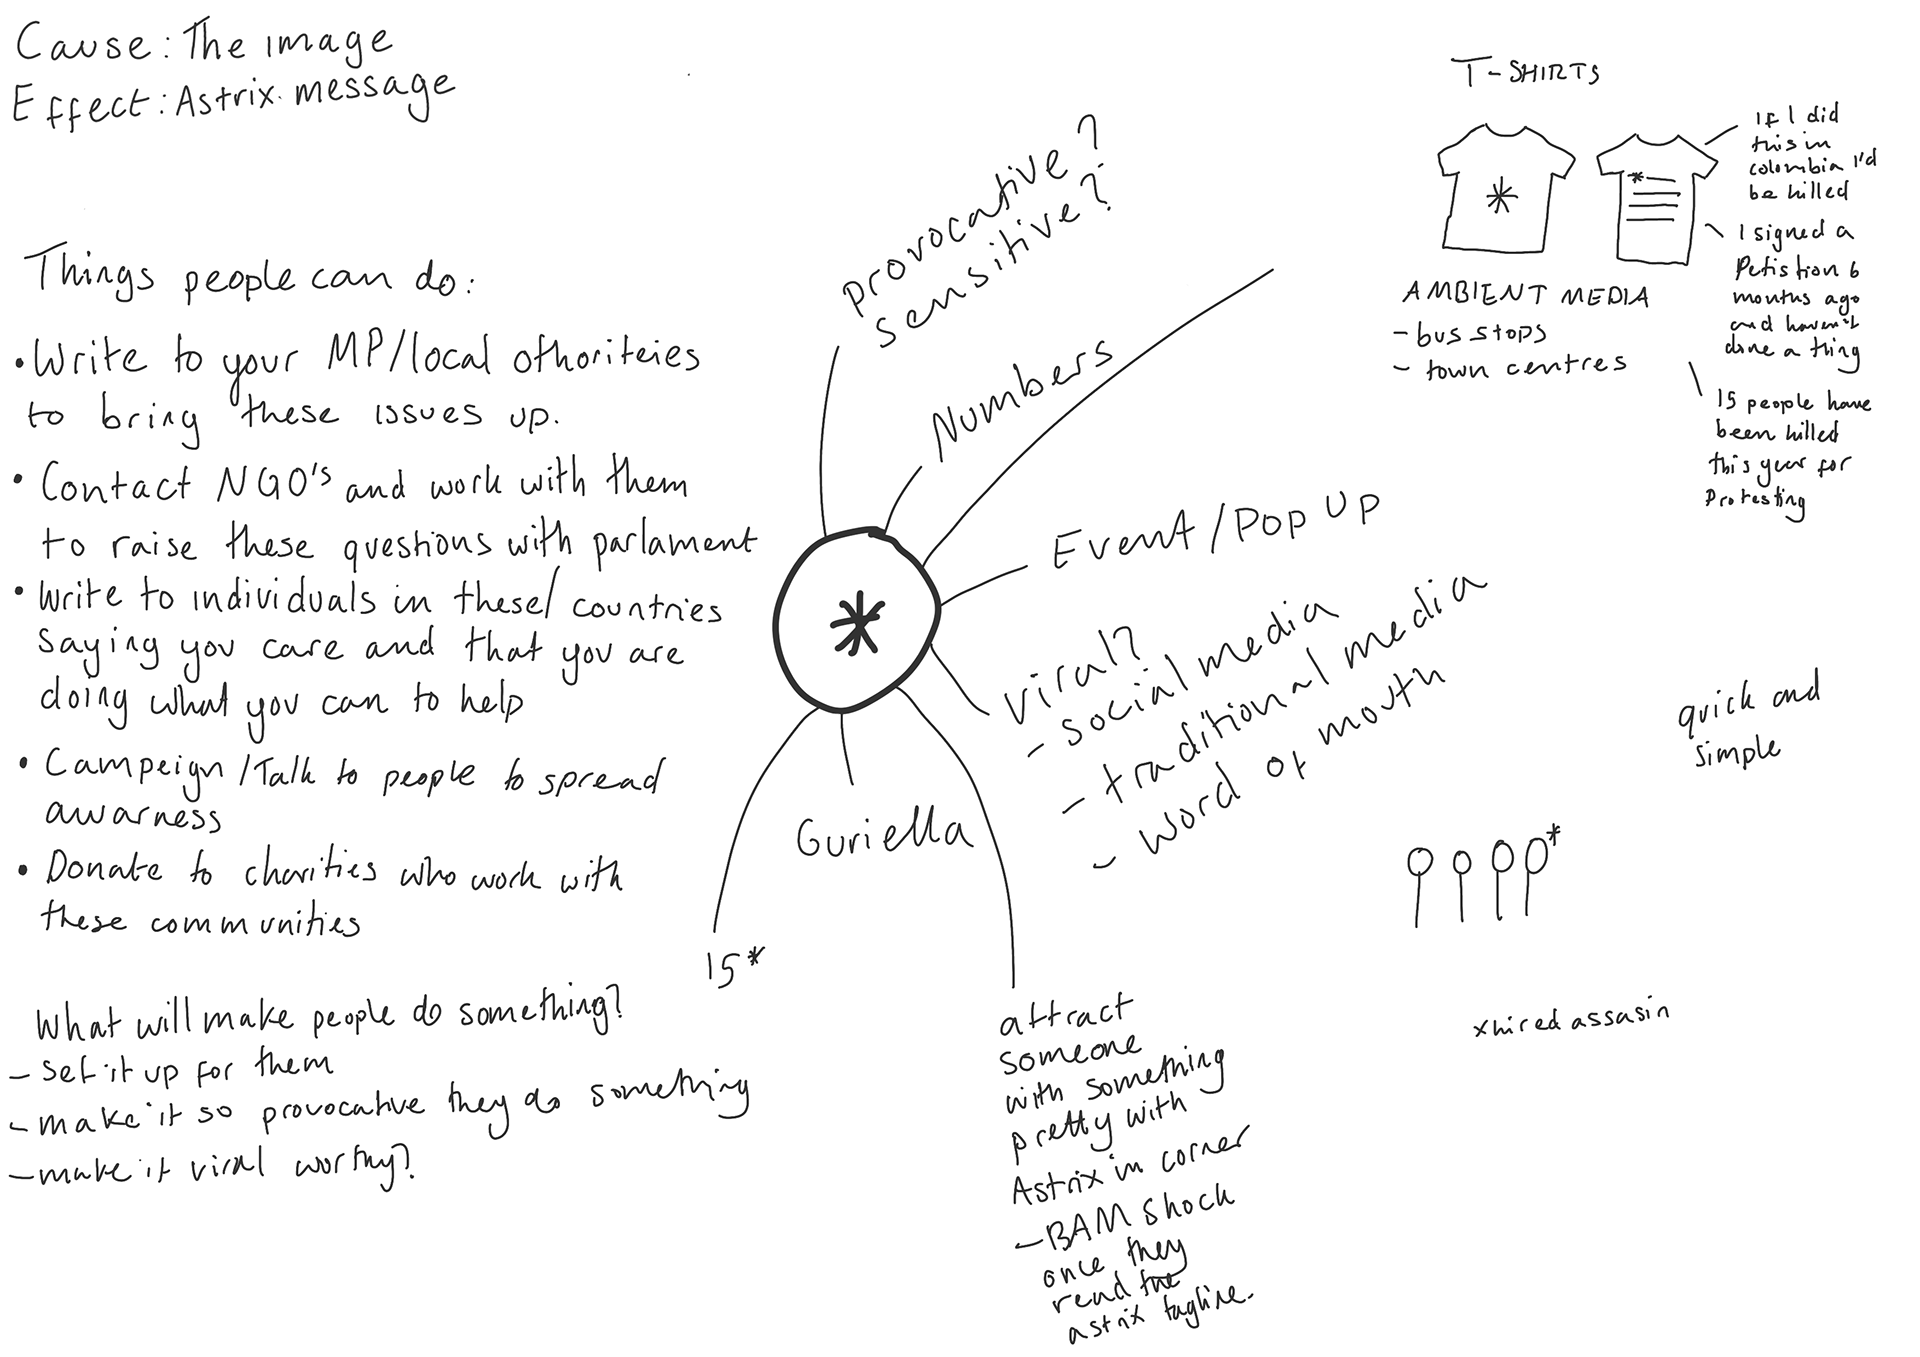 Cause: The image
Effect: Astrix message
Things people can do:
• Write to your MP/local othoriteies
to bring these issues up.
• Contact NGO's and work with them
to raise these questions with parlament
• Write to individuals in these/ countries
saying you care and that you are
doing what you can to help
• Campeign/Talk to people to spread
awarness
• Donate to charities who work with
these communities
What will make people do something?
- set it up for them
- make it so provocative they do something
- make it viral worthy?
provocative?
sensitive?
Numbers
Event/Pop Up
viral?
- social media
- traditional media
- word of mouth
*
Guriella
15*
attract
someone
with something
pretty with
Astrix in corner
- BAM shock
once they
read the
astrix tagline.
T-SHIRTS
*
*
If I did
this in
colombia I'd
be killed
I signed a
Petistion 6
months ago
and haven't
done a thing
15 people have
been killed
this year for
Protesting
AMBIENT MEDIA
- bus stops
- town centres
quick and
simple
*
x hired assasin